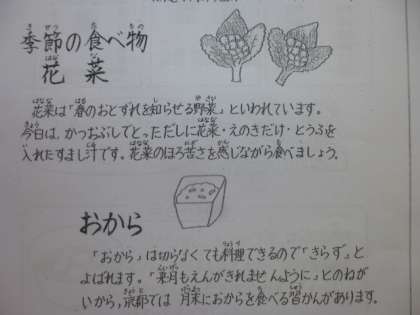 季節の食べ物
花菜
花菜は「春のおとずれを知らせる野菜」といわれています。
今日は、かつおぶしでとっただしに花菜・えのきだけ・とうふを
入れたすまし汁です。花菜のほろ苦さを感じながら食べましょう。
おから
「おから」は切らなくても料理できるので「きらず」と
よばれます。「来月もえんがきれませんように」とのねが
いから、京都では月末におからを食べる習かんがあります。